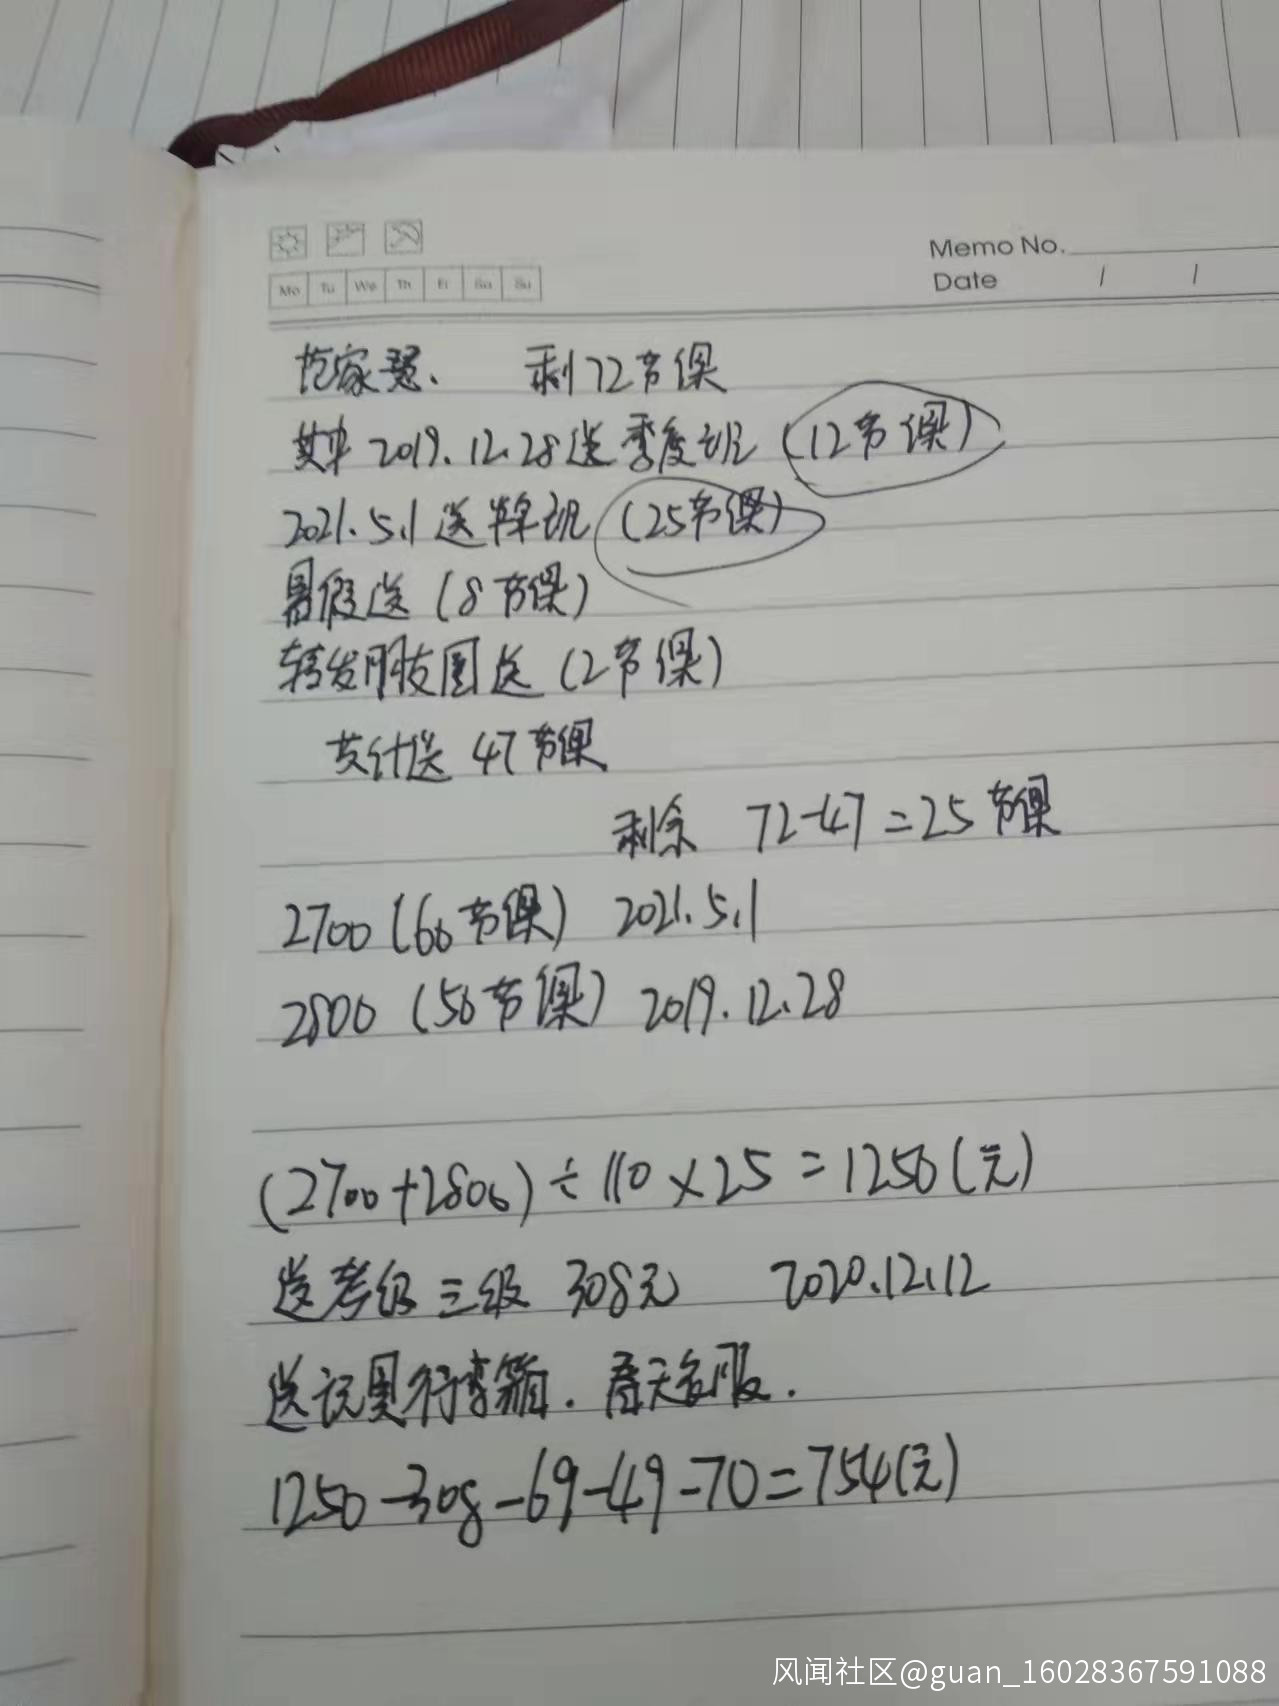 Memo No.
Mo Tu We Th Fr Sa Su
Date / /
范家瑟、 剩72节课
其中 2019.12.28送季度班 (12节课)
2021.5.1送半年班 (25节课)
暑假送 (8节课)
转发朋友圈送 (2节课)
共计送 47节课
剩余 72-47=25节课
2700 (60节课) 2021.5.1
2800 (50节课) 2019.12.28
(2700+2800)÷110×25=1250(元)
送考级三级 308元 2020.12.12
送 行李箱. 春天 服.
1250-308-69-49-70=754(元)
风闻社区@guan_16028367591088